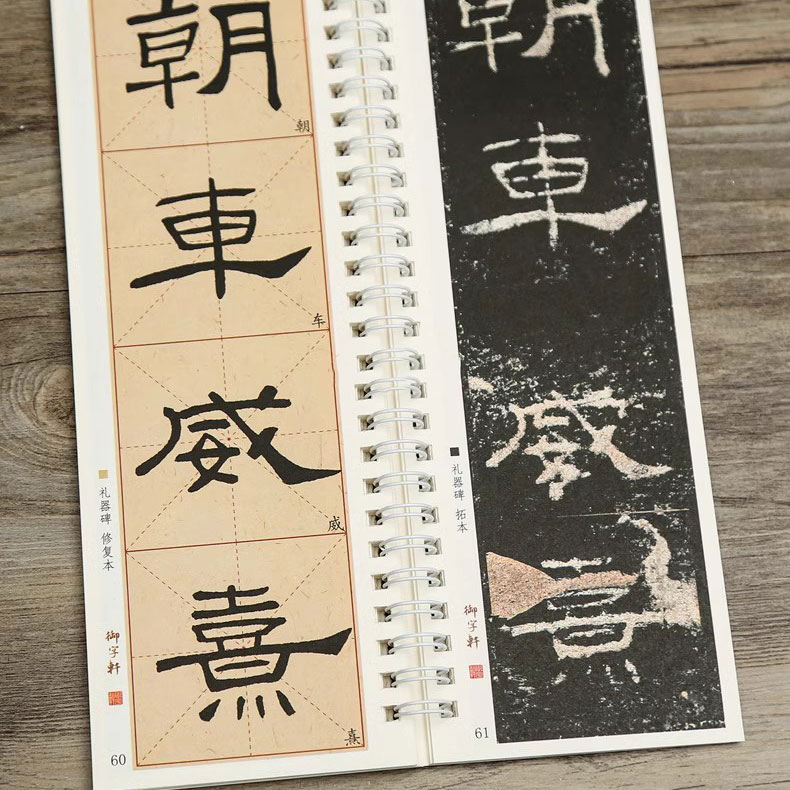 朝
朝
車
车
威
威
熹
熹
礼器碑 修复本
御字軒
60
朝
車
威
熹
礼器碑 拓本
御字軒
61